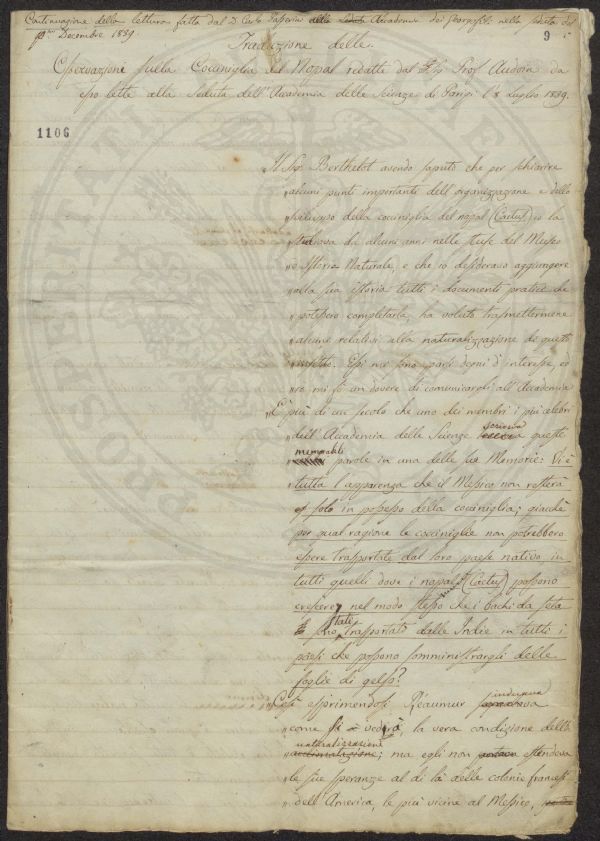 Continuazione della lettura fatta dal D. Carlo Passerini Accademia dei Georgofili nella seduta del
pmo Decembre 1839.
9
Traduzione delle
Osservazioni sulla Cocciniglia del Nopal redatte dal Sig. Prof. Audoin da
esso lette alla Seduta dell'Accademia delle Scienze di Parigi l'8 Luglio 1839.
1106
Il Sig. Berthelot avendo saputo che per schiarire
alcuni punti importanti dell'organizzazione e dello
sviluppo della cocciniglia del nopal (Cactus) io la
studiava da alcuni anni nelle stufe del Museo
d'Istoria Naturale, e che io desiderava aggiungere
alla sua istoria tutti i documenti pratici che
potessero completarla, ha voluto trasmettermene
alcuni relativi alla naturalizzazione di questo
insetto. Essi mi sono parsi degni d'interesse, ed
io mi fo un dovere di comunicarli all'Accademia
È più di un secolo che uno dei membri i più celebri
dell'Accademia delle Scienze scriveva queste
memorabili parole in una delle sue Memorie: Vi è
tutta l'apparenza che il Messico non resterà
solo in possesso della cocciniglia; giacchè
per qual ragione le cocciniglie non potrebbero
essere trasportate dal loro paese nativo in
tutti quelli dove i nopal (Cactus) possono
crescere, nel modo stesso che i bachi da seta
sono stati trasportati dalle Indie in tutti i
paesi che possono somministrargli delle
foglie di gelso?
Così esprimendosi Réaumur indicava
come si vedrà, la vera condizione della
naturalizzazione; ma egli non estendeva
le sue speranze al di là delle colonie francesi
dell'America, le più vicine al Messico,
PROSPERITATI